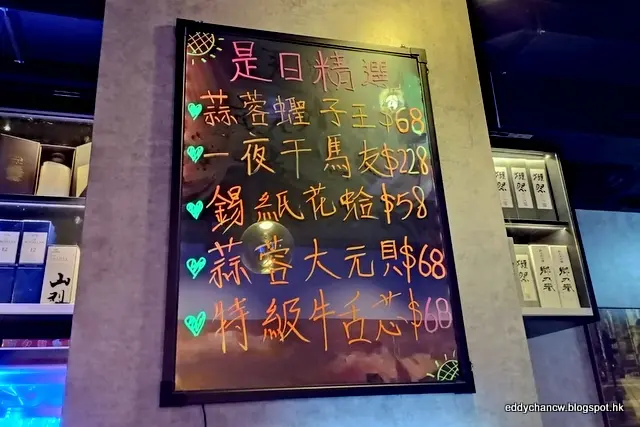 是日精選
蒜蓉蟶子王$68
一夜干馬友$228
錫紙花蛤$58
蒜蓉大元貝$68
特級牛舌芯$68
山
獺祭
獺祭
eddychancw.blogspot.hk